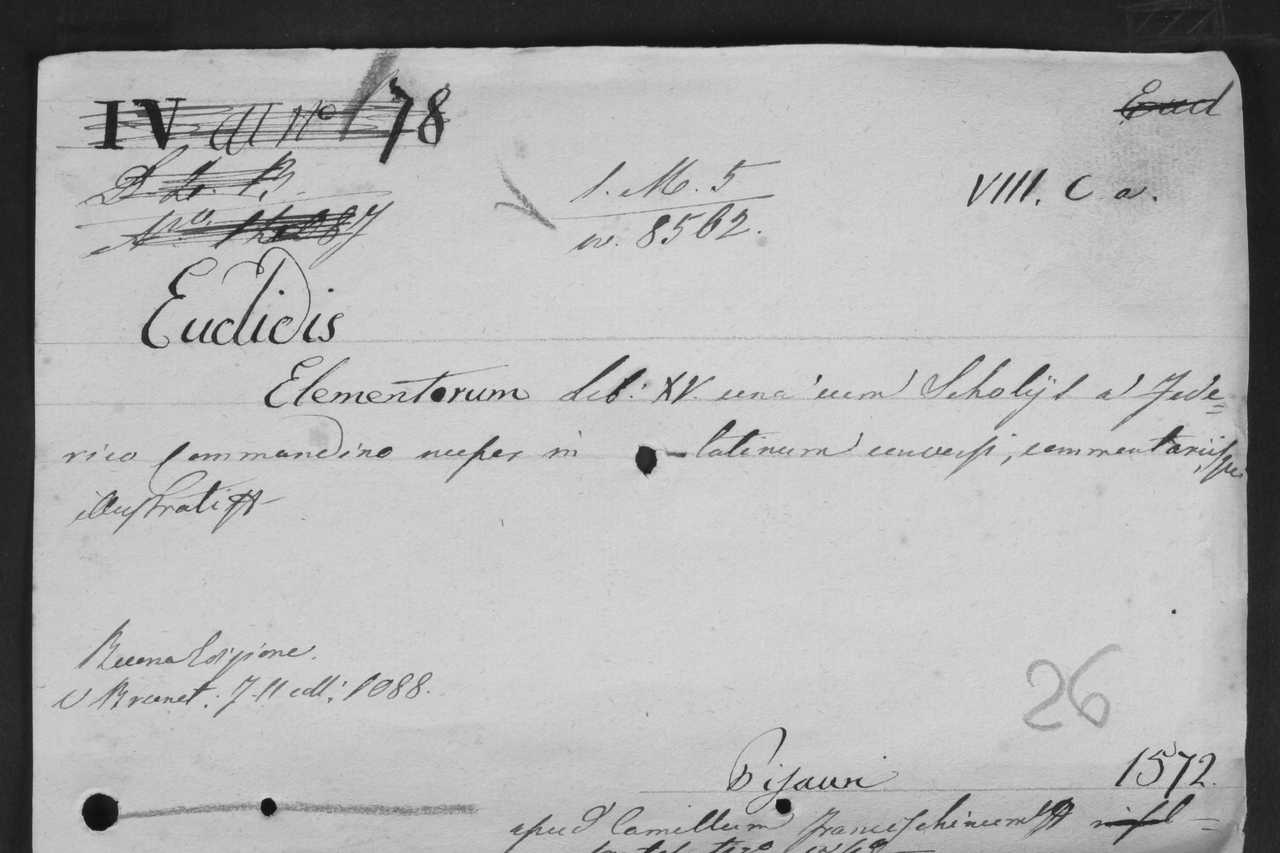 IV 78
Eucl
1. M. 5
VIII. C a.
8562.
Euclidis
Elementorum Lib: XV. una cum Scholijs a Fede=
rico Commandino nuper in latinum conversi, commentarijsque
illustrati
Buona Edizione.
V Brunet. T. II coll: 1088.
26
Pisauri 1572.
apud Camillum Francischinum